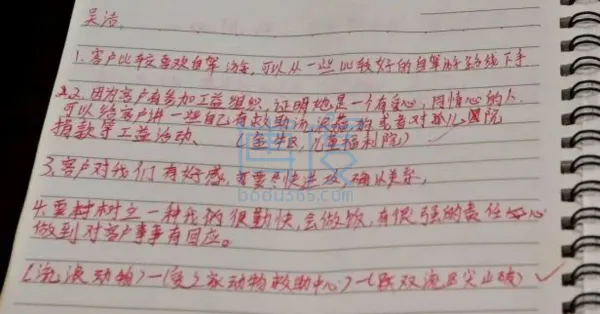 吴洁
1.客户比较喜欢自驾游,可以从一些比较好的自驾游路线下手
2.因为客户有参加工益组织,证明她是一个有爱心,同情心的人
可以给客户讲一些自己有救助流浪猫的或者对孤儿院
捐款等工益活动。(金牛区,儿童福利院)
3.客户对我们有好感,需要尽快进攻,确认关系,
4.要树立一种我们很勤快,会做饭,有很强的责任心
做到对客户事事有回应。
(流浪动物)—(爱之家动物救助中心)—(双流区尖山)
博度
bodu365.com